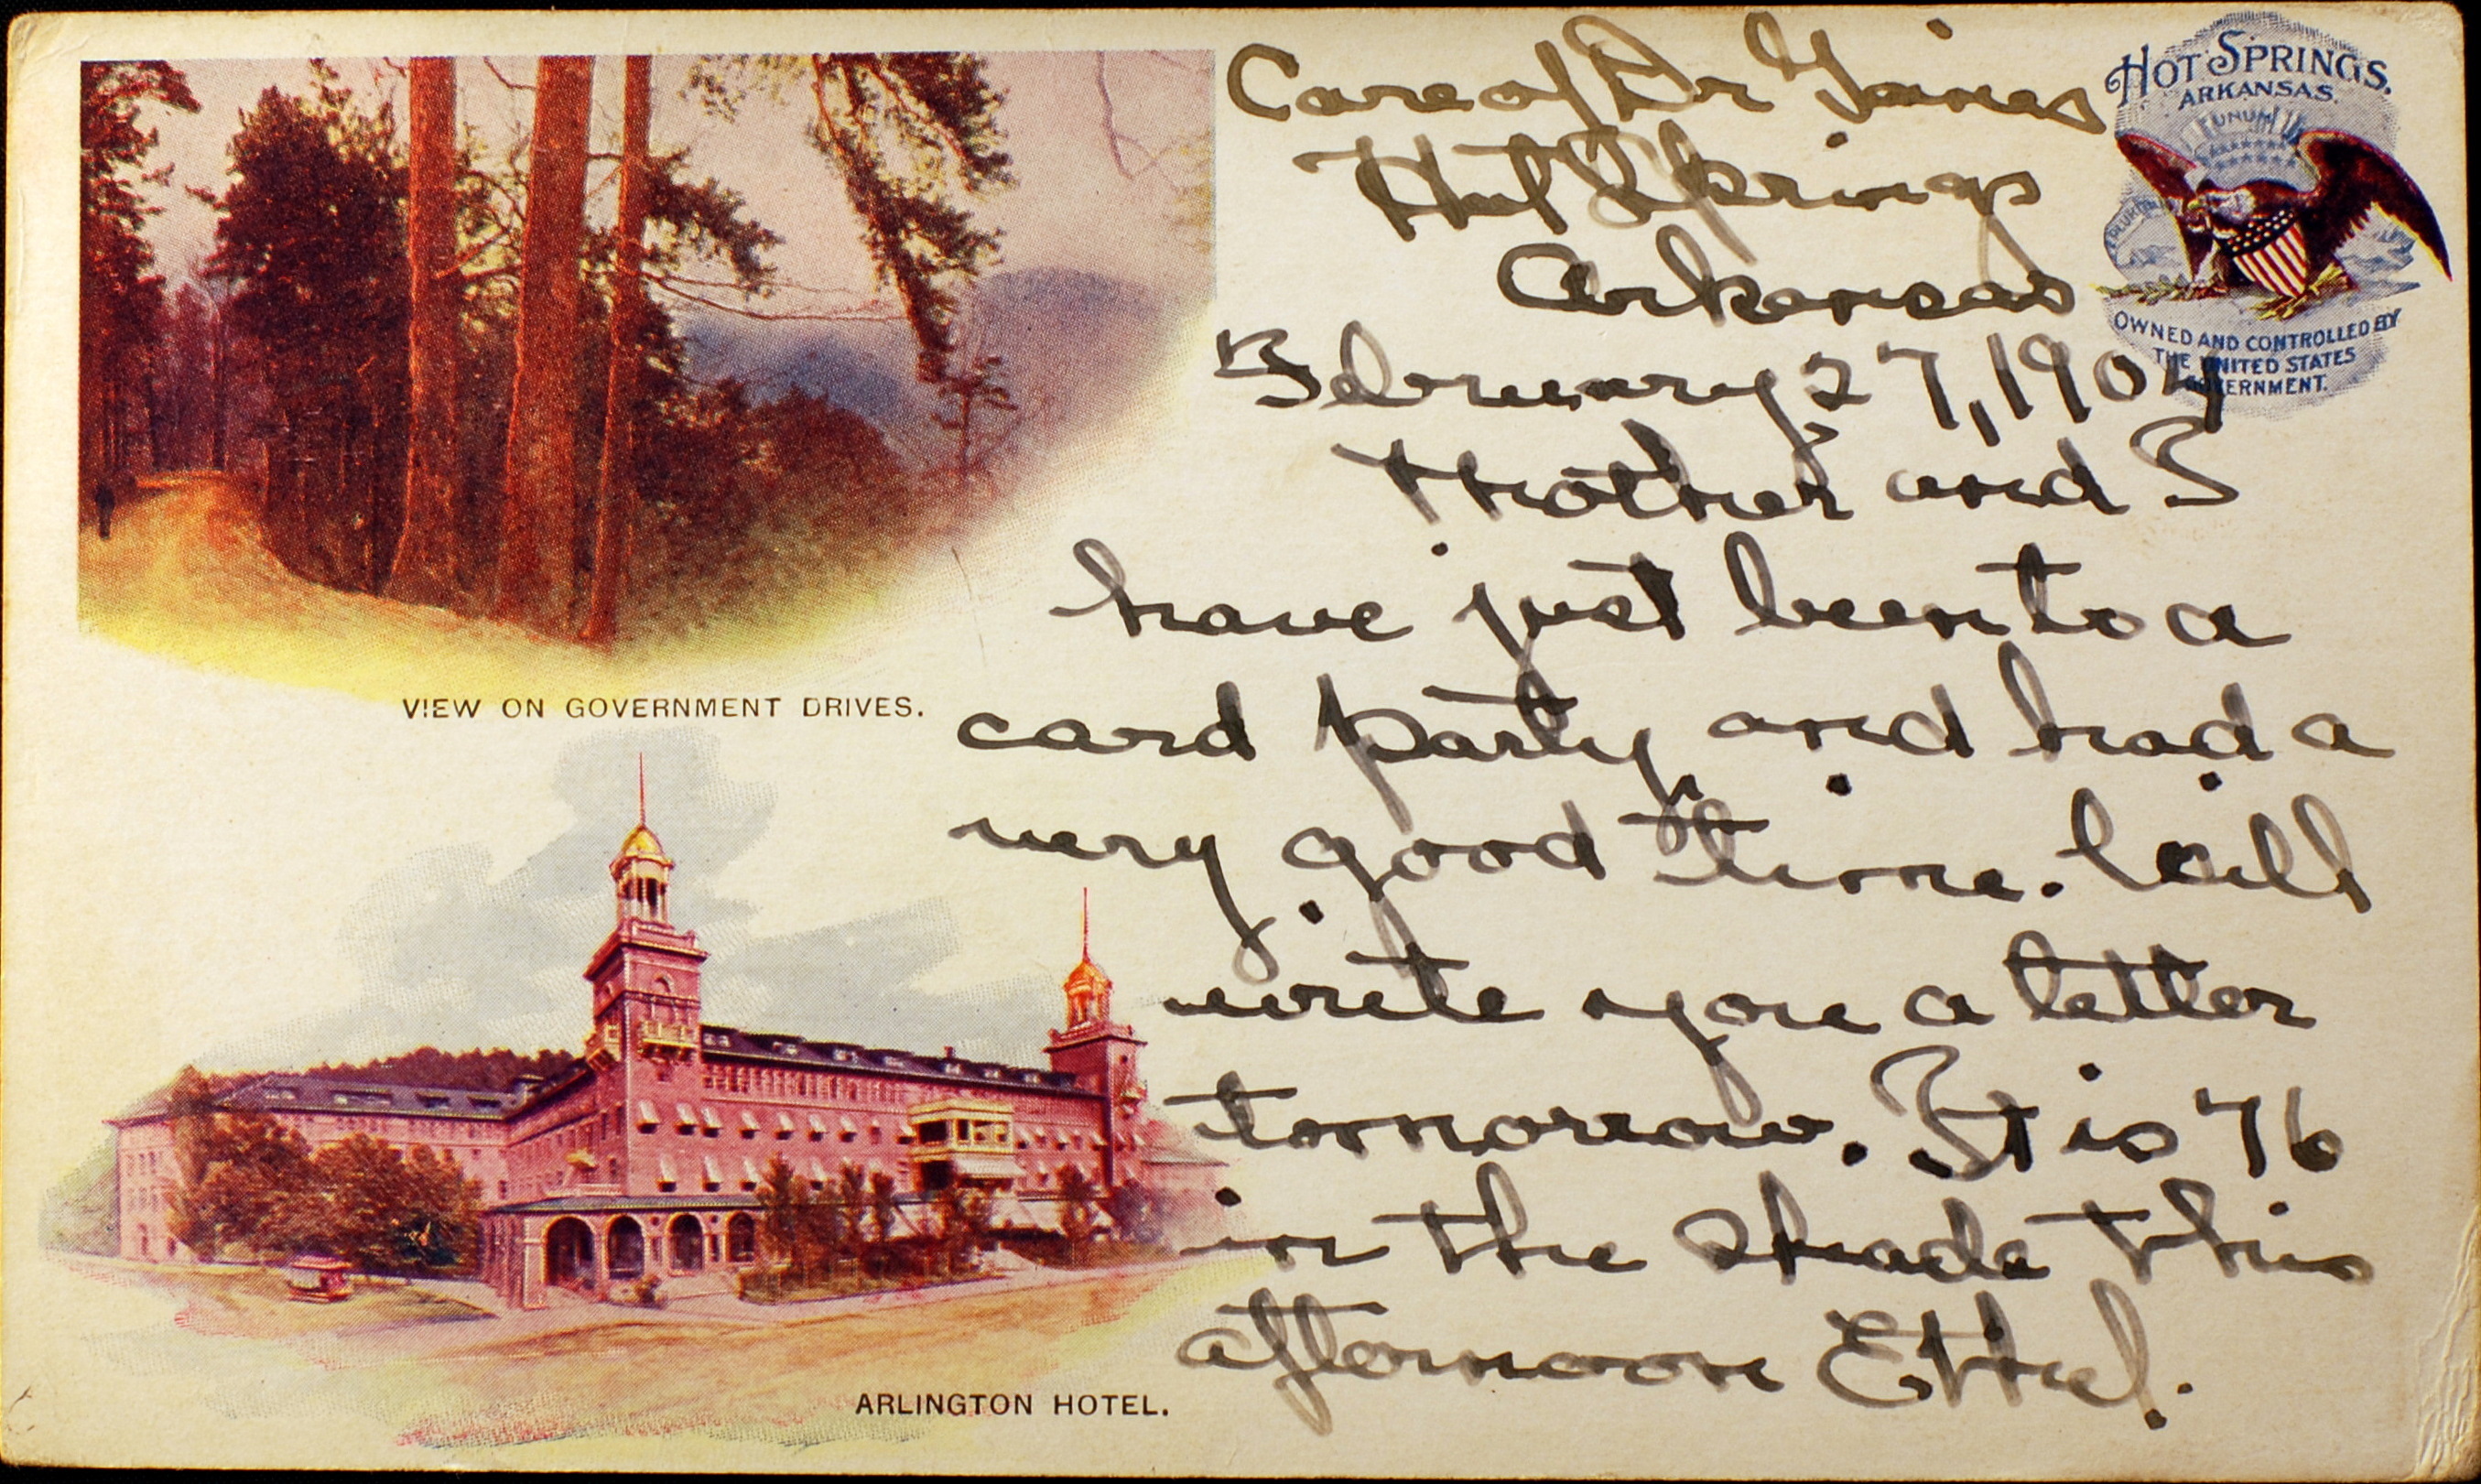 Care of Dr Gaines
Hot Springs
Arkansas
February 27, 1904
Mother and I
have just been to a
card party, and had a
very good time. Will
write you a letter
tomorrow. It is 76
in the shade this
afternoon Ethel.
HOT SPRINGS,
ARKANSAS.
UNUM
OWNED AND CONTROLLED BY
THE UNITED STATES
GOVERNMENT.
VIEW ON GOVERNMENT DRIVES.
ARLINGTON HOTEL.